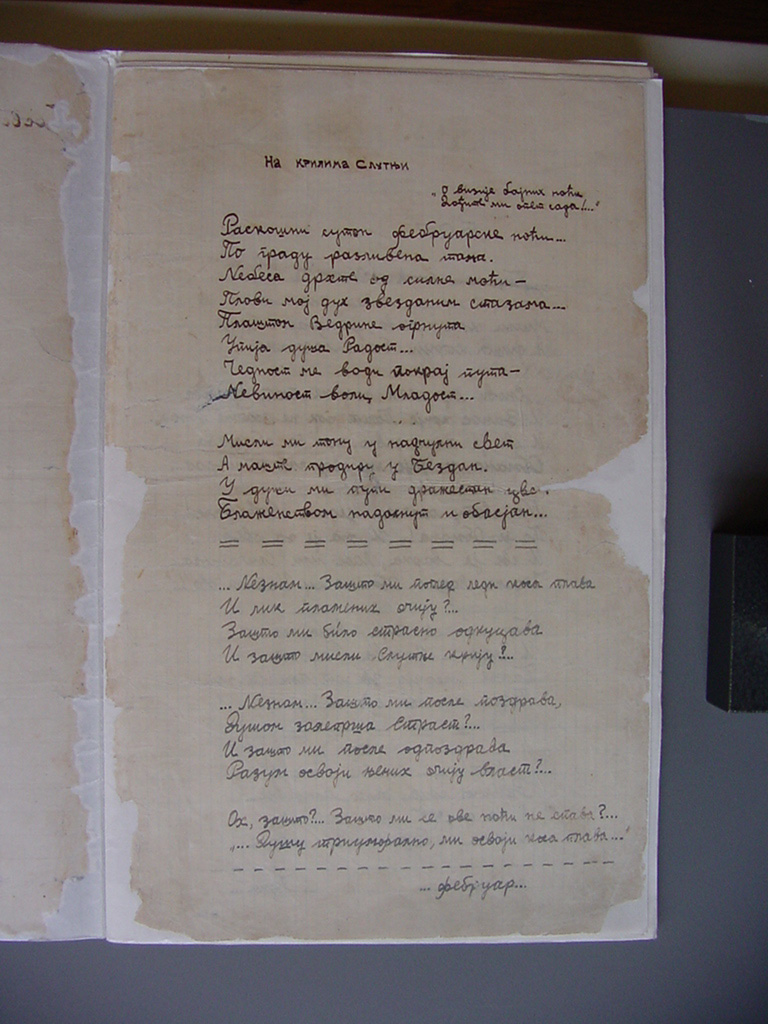 На крилима Слутњи
„О визије бајних ноћи
Дођите ми опет сада!...“
Раскошни сутон фебруарске ноћи...
По граду разливена тама.
Небеса дрхте од силне моћи –
Плови мој дух звезданим стазама...
Плаштом Ведрине огрнута
Упија душа Радост...
Чедност ме води покрај пута –
Невиност воли, Младост...
Мисли ми тону у надчулни свет
А машт продиру у Бездан.
У души ми пупи дражестан цве .
Блаженством надахнут и обасјан...
= = = = = = = =
... Незнам... Зашто ми поглед леди коса плава
И лик пламених очију?...
Зашто ми било страсно одкуцава
И зашто мисли Слутње крију?...
... Незнам... Зашто ми после поздрава,
Душом залепрша Страст?...
И зашто ми после одпоздрава
Разум освоји њених очију власт?...
Ох, зашто?... Зашто ми се ове ноћи не спава?...
„... Душу тријумфално, ми освоји коса плава...“
– – – – – – – – – – – – – – – – – –
... фебруар...